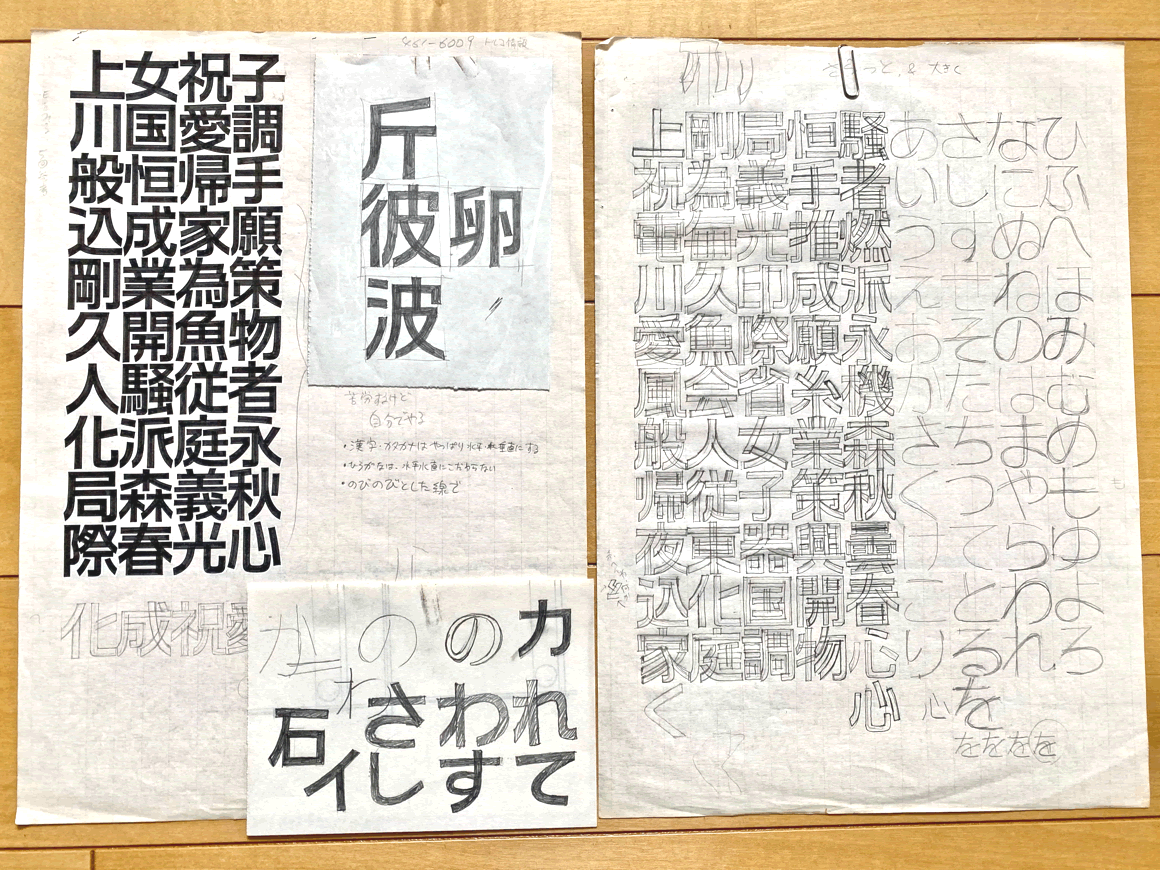 子調手願策物者永秋心
祝愛帰家為魚従庭義光
女国恒成業開騒派森春
上川般込剛久人化局際
化成祝愛
斤
彼卵
波
自分でやる
・漢字・カタカナはやっぱり水平・垂直にする
・ひらがなは、水平垂直にこだわらない
・のびのびとした線で
かののカ
さわれ
石イしすて
大きく
上祝電川愛風般帰夜込家く
剛為無久魚会人従東化庭
局義光印際省女子器国調
恒手推成願糸業策興開物
騒者燃派永機森秋雲春心心
あいうえおかきくけこり心
さしすせそたちつてとるを
なにぬねのはまやらわれ
ひふへほみむめもゆよろ
ををを を